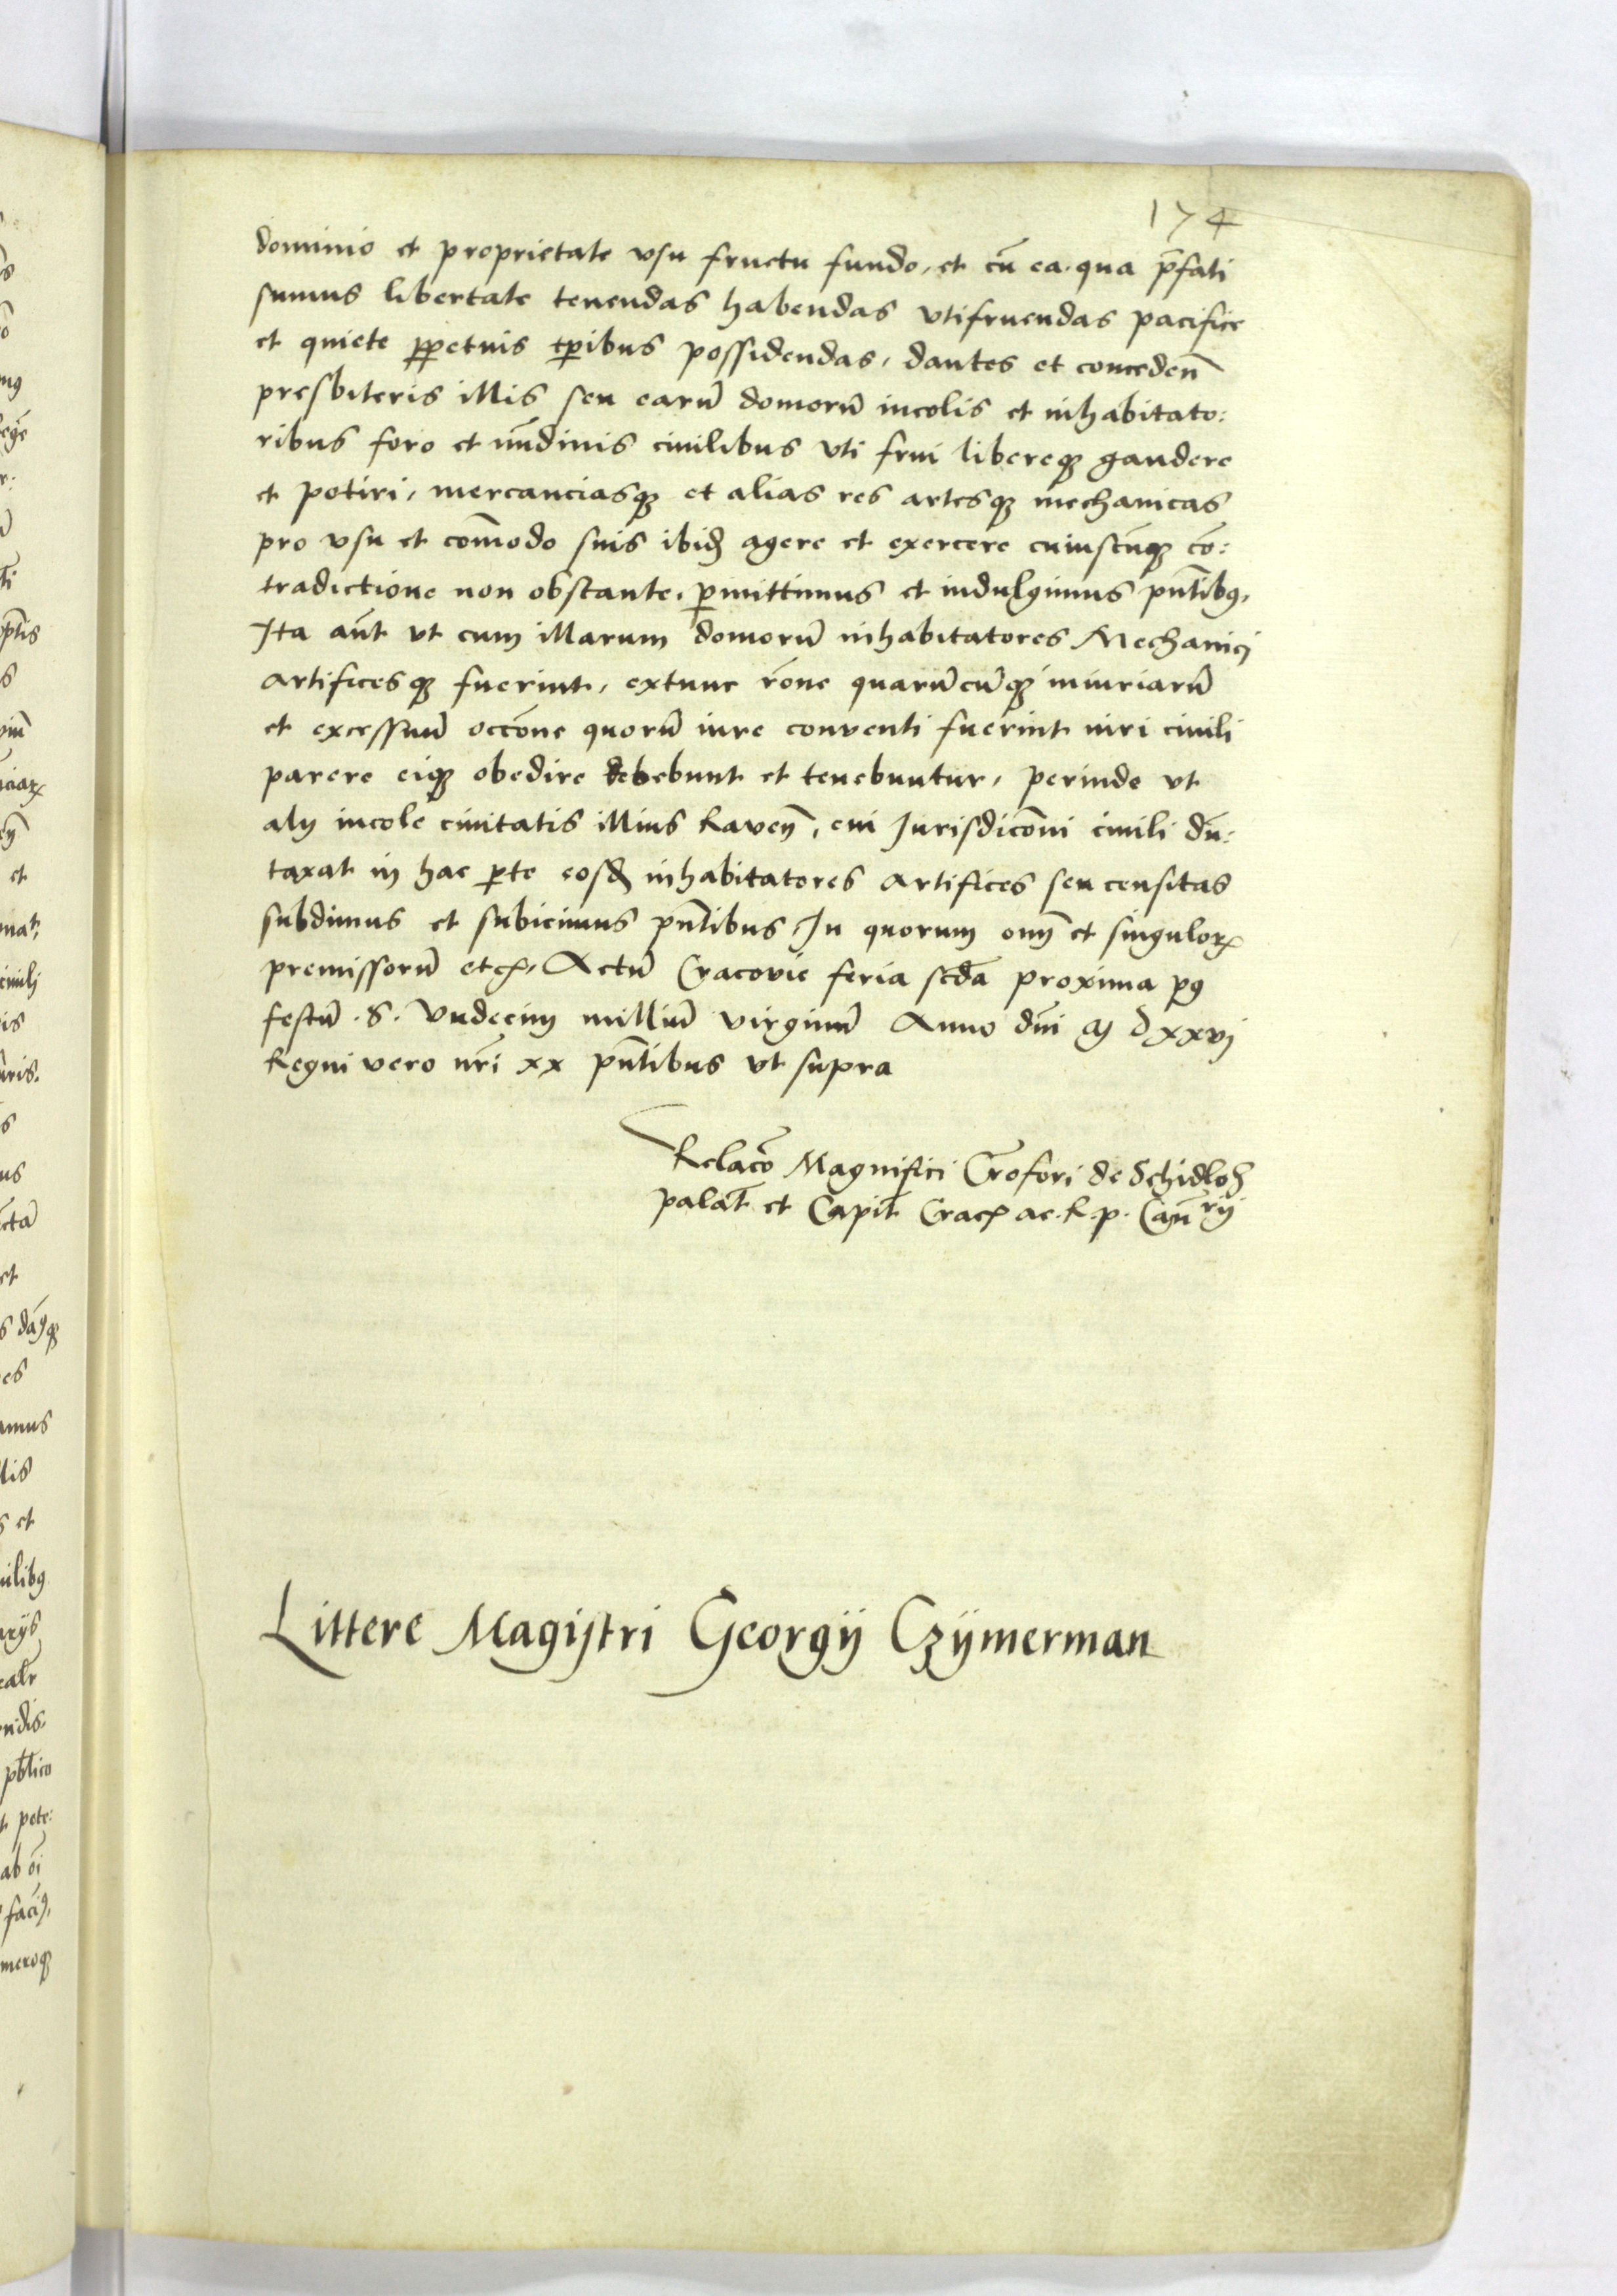 174
dominio et proprietate vsu fructu fundo, et cū ea qua p̄fati
sumus libertate tenendas habendas vtifruendas pacifice
et quiete ꝑpetuis tꝑibus possidendas, dantes et conceden̄
presbiteris illis seu earū domorū incolis et inhabitato:
ribus foro et nūdinis ciuilibus vti frui libereqꝫ gaudere
et potiri, mercanciasqꝫ et alias res artesqꝫ mechanicas
pro vsu et cōmodo suis ibidꝫ agere et exercere cuiuscūqꝫ cō:
tradictione non obstante, ꝑmittimus et indulgimus pn̄tibꝰ,
Ita aūt vt cum illarum domorū inhabitatores Mechanici
artificesqꝫ fuerint, extunc rōne quarūcūqꝫ iniuriarū
et excessuū occōne quorū iure conventi fuerint iuri ciuili
parere eiqꝫ obedire debebunt et tenebuntur, perinde vt
alij incole ciuitatis illius Raven̄, cui Jurisdicōni ciuili dū:
taxat in hac ꝑte eosdꝫ inhabitatores artifices seu censitas
subdimus et subicimus pn̄tibus, In quorum om̄ et singuloꝝ
premissorū etcꝫ, Actū Cracovie feria scd̄a proxima pꝰ
festū .S. Vndecim milliū virginū Anno dn̄i M Dxxvj
Regni vero nr̄i xx pn̄tibus vt supra
Relacō Magnifici Cr̄ofori de Schidloꝫ
palat̄ et Capit̄ Cracꝫ ac. R. p. Can̄rij
Littere Magistri Georgij Czijmerman